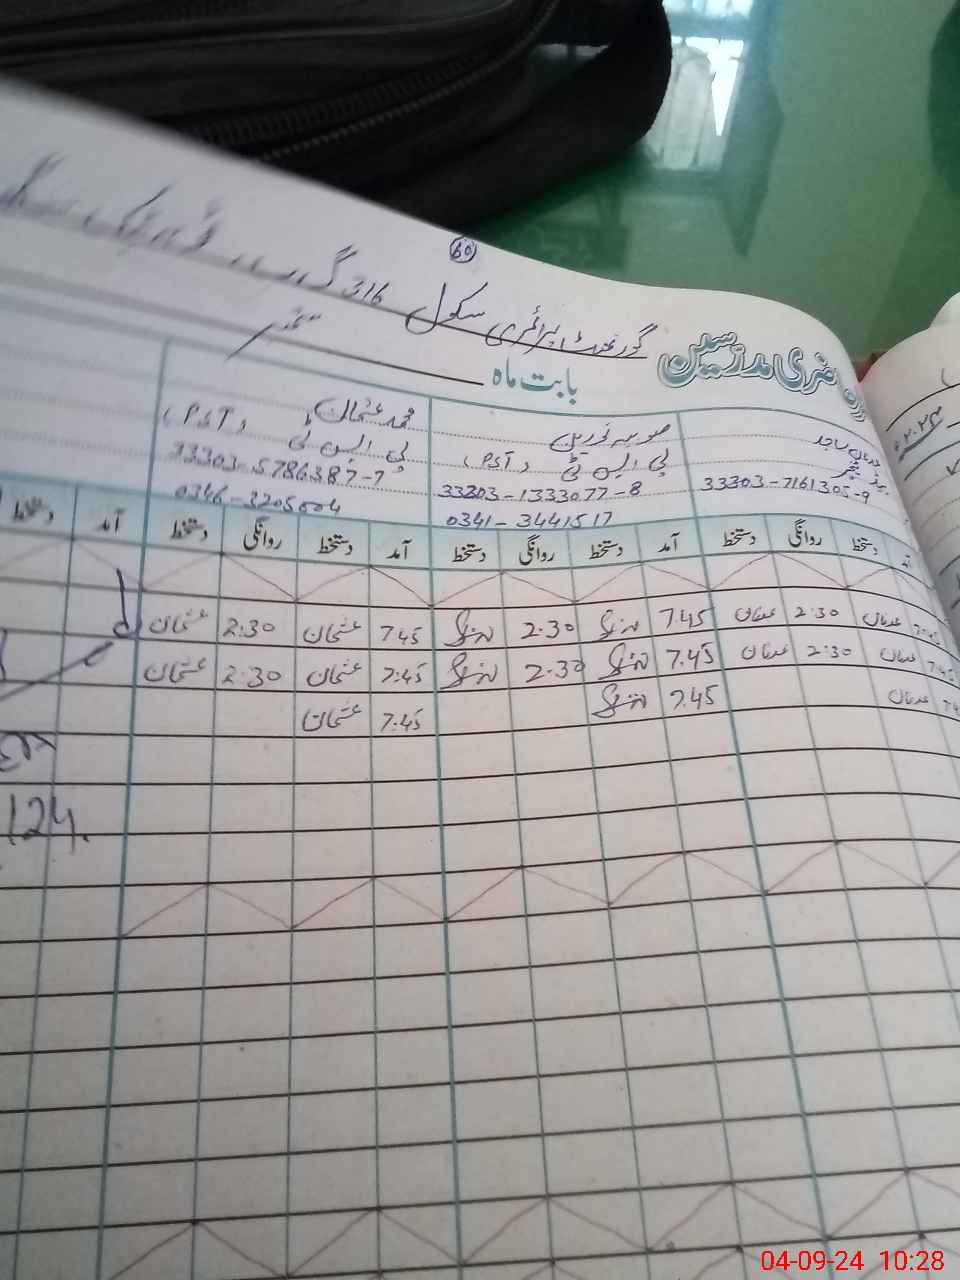 60
گورنمنٹ پرائمری سکول 316 گ ب
مدرسین
بابت ماہ ستمبر
عدنان ساجد
ہیڈ ٹیچر
33303-7161305-9
صوبیہ نورین
پی ایس ٹی (PST)
33303-1333077-8
0341-3441517
محمد عثمان
پی ایس ٹی (PST)
33303-5786387-7
0346-3205604
دستخط روانگی دستخط آمد دستخط روانگی دستخط آمد دستخط روانگی دستخط آمد دستخط
7.45 عدنان 2:30 عدنان 7.45 2:30 7:45 عثمان 2:30 عثمان
7.45 عدنان 2:30 عدنان 7.45 2:30 7:45 عثمان 2:30 عثمان
عدنان 7.45 7.45 عثمان
124.
04-09-24 10:28